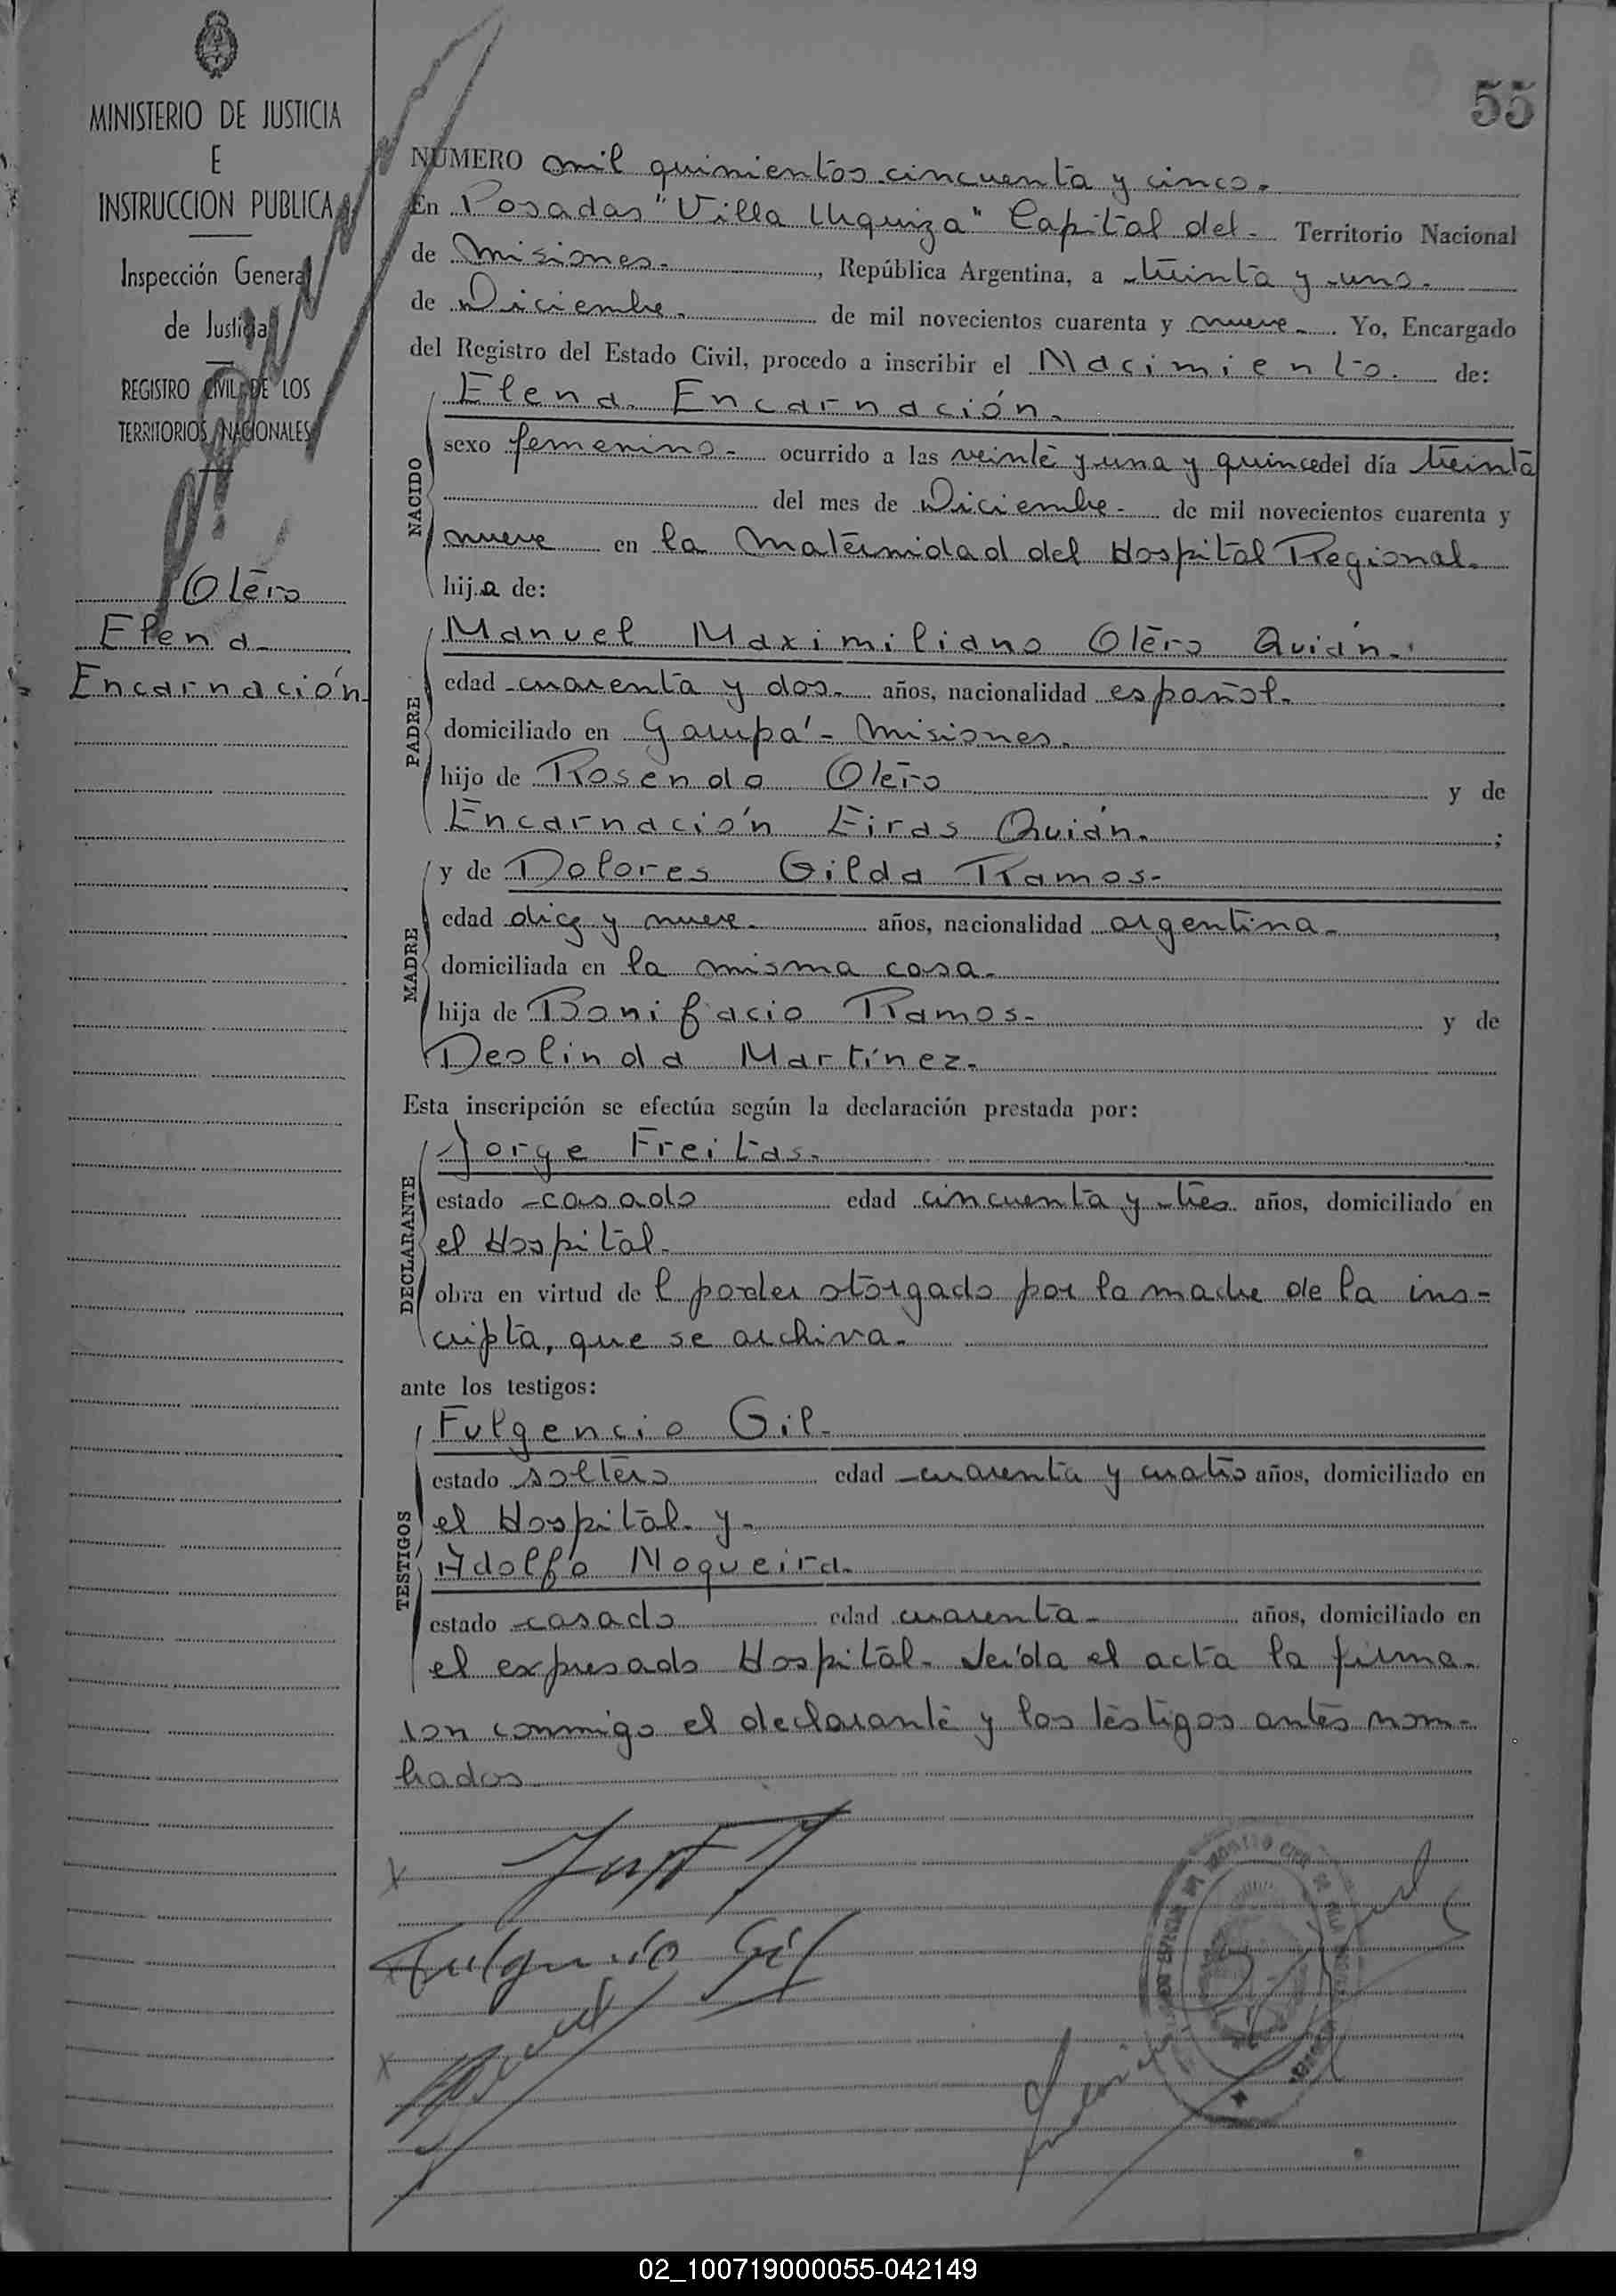 MINISTERIO DE JUSTICIA
E
INSTRUCCION PUBLICA
Inspección General
de Justicia
REGISTRO CIVIL DE LOS
TERRITORIOS NACIONALES
Otero
Elena
Encarnación
55
NUMERO mil quinientos cincuenta y cinco.
En Posadas "Villa Urquiza" Capital del Territorio Nacional
de Misiones. , República Argentina, a treinta y uno.
de Diciembre. de mil novecientos cuarenta y nueve. Yo, Encargado
del Registro del Estado Civil, procedo a inscribir el Nacimiento. de:
NACIDO
Elena Encarnación.
sexo femenino ocurrido a las veinte y una y quince del día treinta
del mes de Diciembre de mil novecientos cuarenta y
nueve en la Maternidad del Hospital Regional.
hija de:
PADRE
Manuel Maximiliano Otero Quián.
edad cuarenta y dos. años, nacionalidad español.
domiciliado en Garupá - Misiones.
hijo de Rosendo Otero y de
Encarnación Eiras Quián. ;
MADRE
y de Dolores Gilda Ramos-
edad diez y nueve. años, nacionalidad argentina- ,
domiciliada en la misma casa.
hija de Bonifacio Ramos- y de
Deolinda Martínez.
Esta inscripción se efectúa según la declaración prestada por:
DECLARANTE
Jorge Freitas.
estado casado edad cincuenta y tres años, domiciliado en
el Hospital.
obra en virtud del poder otorgado por la madre de la ins-
cripta, que se archiva.
ante los testigos:
TESTIGOS
Fulgencio Gil.
estado soltero edad cuarenta y cuatro años, domiciliado en
el Hospital y.
Adolfo Noqueira.
estado casado edad cuarenta- años, domiciliado en
el expresado Hospital. Leída el acta la firma-
ron conmigo el declarante y los testigos antes nom-
brados
Fulgencio Gil
02_100719000055-042149